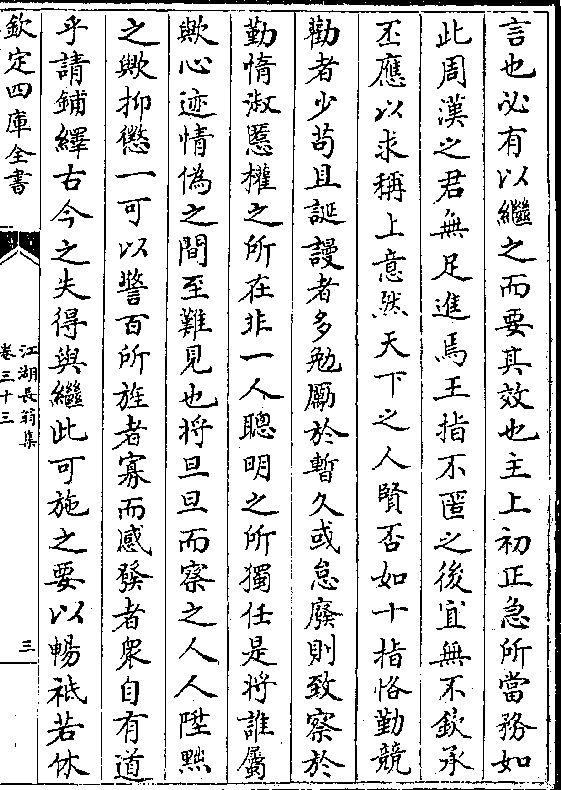 言也必有以繼之而要其效也主上初正急所當務如
此周漢之君無足進焉王指不匿之後宜無不欽承
丕應以求稱上意然天下之人賢否如十指恪勤競
勸者少苟且誕謾者多勉勵於暫久或怠廢則致察於
勤惰淑慝權之所在非一人聰明之所獨任是將誰屬
歟心迹情偽之間至難見也將旦旦而察之人人陞黜
之歟抑懲一可以警百所旌者寡而感發者衆自有道
乎請鋪繹古今之失得與繼此可施之要以暢祇若休
欽定四庫全書
江湖長翁集
卷三十三
三